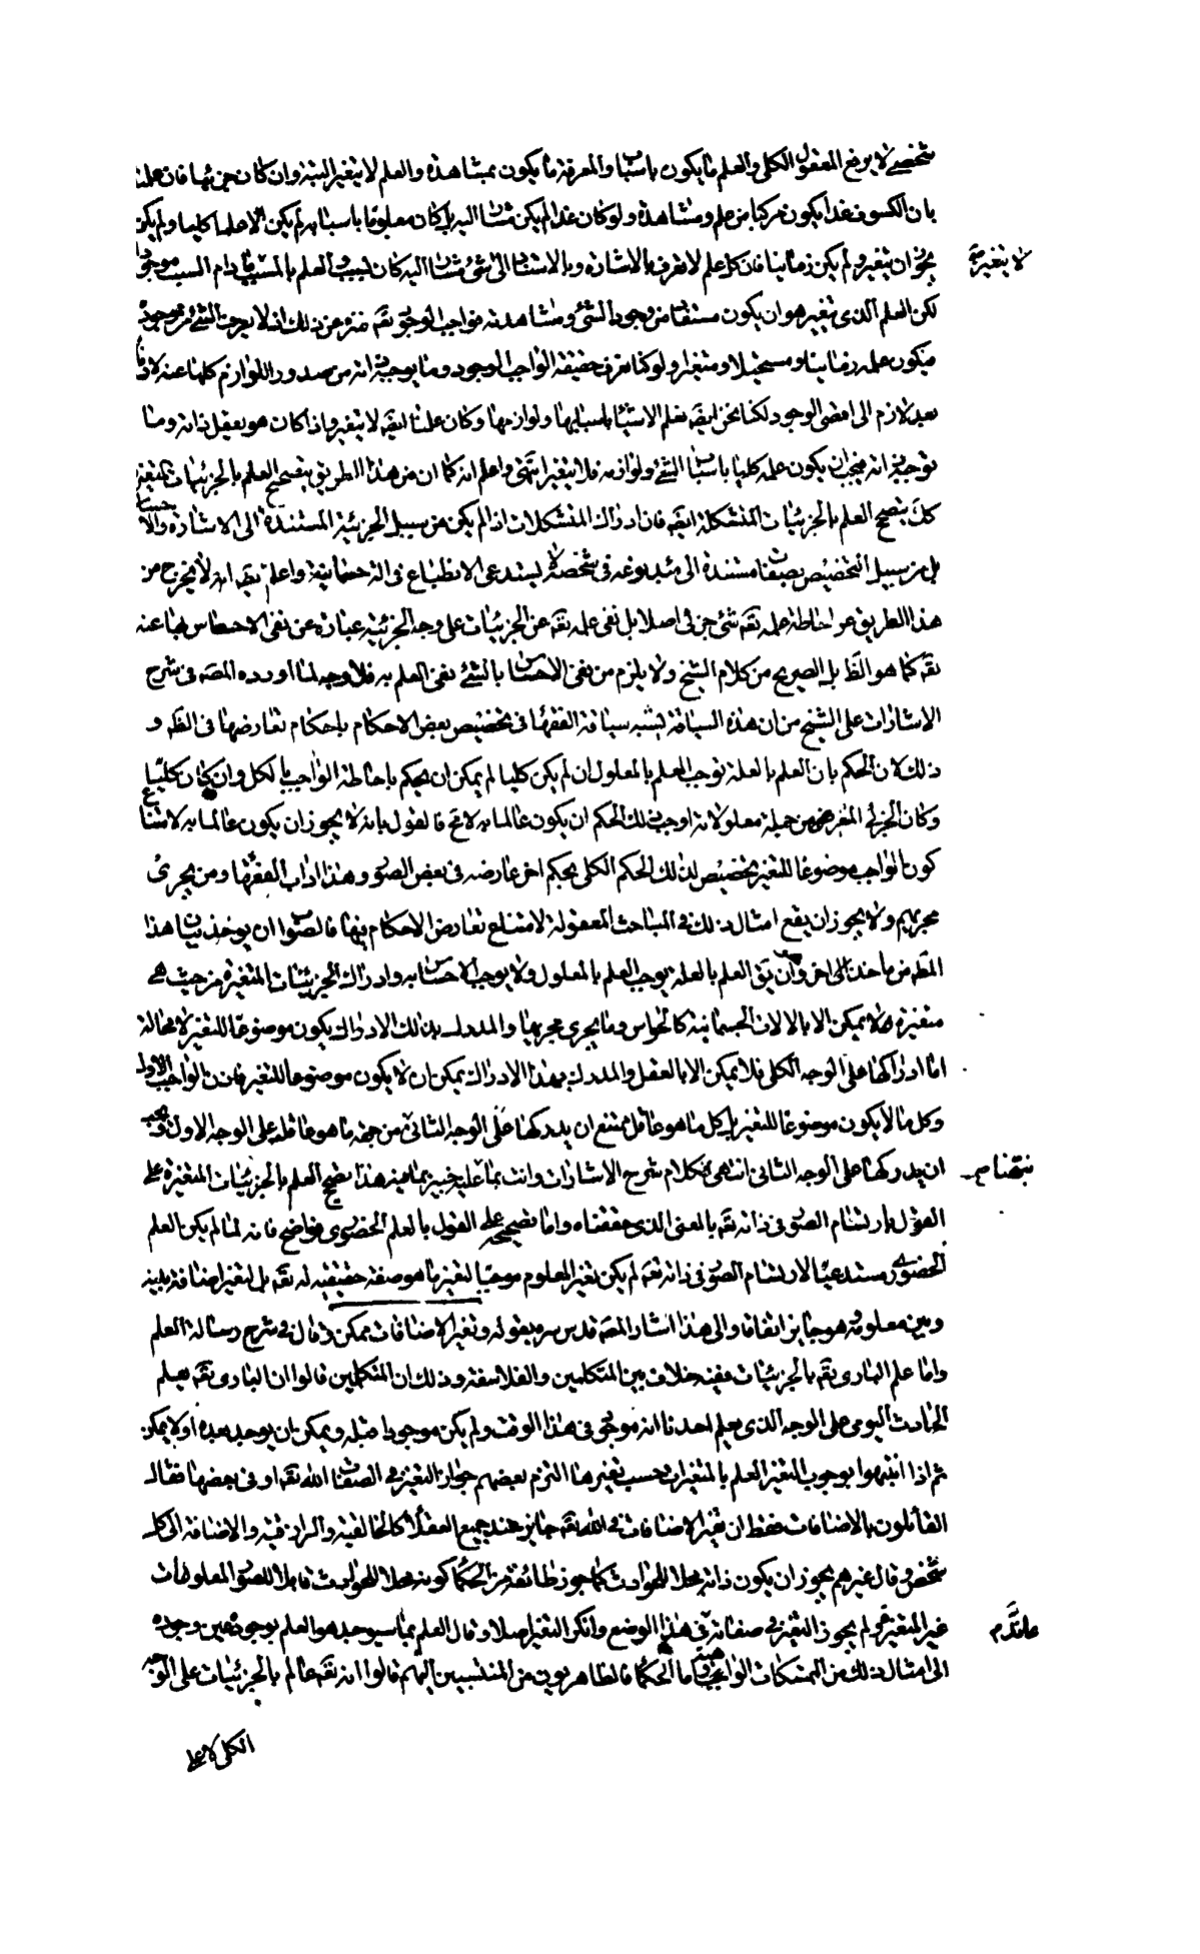 شخصي لا يرفع المعقول الكلي والعلم ما يكون باسباب والمعرفة ما يكون بمشاهدة والعلم لا يتغير البتة وان كان جزئيا فان علمنا
بان الكسوف غدا يكون مركبا من علم ومشاهدة ولو كان غدا لم يكن مشارا اليه بل كان معلوما باسبابه لم يكن الا علما كليا ولم يكن
يجوز ان يتغير ولم يكن زمانيا فان كل علم لا يعرف بالاشارة وبالاستناد الى شئ مشار اليه كان بسبب والعلم بالمسبب ما دام السبب موجودا
لا يتغير
لكن العلم الذى يتغير هو ان يكون مستفادا من وجود الشئ ومشاهدته فواجب الوجود تقه منزه عن ذلك اذ لا يعرف الشئ من وجوده
فيكون علمه زمانيا ومستحيلا ومتغيرا ولو كنا نعرف حقيقة الواجب الوجود وما يوجبه ذاته من صدور اللوازم كلها عنه لازما
بعد لازم الى اقصى الوجود لكنا نحن ايضه نعلم الاشياء باسبابها ولوازمها وكان علمنا ايضه لا يتغير واذا كان هو يعقل ذاته وما
توجبه ذاته فيجب ان يكون علمه كليا باسباب الشئ ولوازمه فلا يتغير انتهى واعلم انه كما ان من هذا الطريق يتصحح العلم بالجزئيات المتغيرة
كك يتصحح العلم بالجزئيات المتشكلة ايضه فان ادراك المتشكلات اذا لم يكن من سبيل الجزئية المستندة الى الاشارة والاحساس
بل من سبيل التخصيص بصفات مستندة الى مبدء نوعه فى شخصه لا يستدعى الانطباع فى الة جسمانية واعلم ايضه انه لا يخرج من
هذا الطريق عن احاطة علمه تقه شئ جزئى اصلا بل نفى علمه تقه عن الجزئيات على وجه الجزئية عبارة عن نفى الاحساس بها عنه
تقه كما هو الظ بل الصريح من كلام الشيخ ولا يلزم من نفى الاحساس بالشئ نفى العلم به فلا وجه لما اورده المصه فى شرح
الاشارات على الشيخ من ان هذه السياقة يشبه سياقة الفقهاء فى تخصيص بعض الاحكام باحكام تعارضها فى الظه و
ذلك لان الحكم بان العلم بالعلة توجب العلم بالمعلول ان لم يكن كليا لم يمكن ان يحكم باحاطة الواجب بالكل وان كان كليا
وكان الجزئى المتغير من جملة معلولاته اوجب ذلك الحكم ان يكون عالما به لا مح فالقول بانه لا يجوز ان يكون عالما به لامتناع
كون الواجب موضوعا للتغير تخصيص لذلك الحكم الكلى بحكم اخر عارضه فى بعض الصور وهذا داب الفقهاء ومن يجرى
مجريهم ولا يجوز ان يقع امثال ذلك فى المباحث المعقولة لامتناع تعارض الاحكام فيها فالصواب ان يوخذ بيان هذا
المطه من ماخذ اخر وهو ان يق العلم بالعلة يوجب العلم بالمعلول ولا يوجب الاحساس به وادراك الجزئيات المتغيرة من حيث هى
متغيرة لا يمكن الا بالالات الجسمانية كالحواس وما يجرى مجريها والمدرك بذلك الادراك يكون موضوعا للتغير لا محالة
اما ادراكها على الوجه الكلى فلا يمكن الا بالعقل والمدرك بهذا الادراك يمكن ان لا يكون موضوعا للتغير فاذن الواجب الاول
وكل ما لا يكون موضوعا للتغير بل كل ما هو عاقل يمتنع ان يدركها على الوجه الثانى من جهة ما هو عاقل على الوجه الاول ويجب
ان يدركها على الوجه الثانى انتهى كلام شرح الاشارات وانت بما عليه خبير بما فيه هذا تصحيح العلم بالجزئيات المتغيرة على
القول بارتسام الصور فى ذاته تقه بالمعنى الذى حققناه واما تصحيحه على القول بالعلم الحضورى فواضح فانه لما لم يكن العلم
الحضورى مستدعيا لارتسام الصور فى ذاته تقه لم يكن تغير المعلوم موجبا لتغير ما هو صفة حقيقية له تقه بل لتغير اضافة بينه
وبين معلومه وهو جايز اتفاقا والى هذا اشار المصه قدس سره بقوله وتغير الاضافات ممكن وقال فى شرح رسالة العلم
واما علم البارى تقه بالجزئيات ففيه خلاف بين المتكلمين والفلاسفة وذلك ان المتكلمين قالوا ان البارى تقه يعلم
الحادث اليومى على الوجه الذى يعلم احدنا انه موجود فى هذا الوقت ولم يكن موجودا قبله ويمكن ان يوجد بعده او لا يمكن
ثم اذا انتبهوا بوجوب التغير العلم بالمتغيرات حسب تغيرها التزم بعضهم جواز التغير فى الصفات الله تقه او فى بعضها فقال
القائلون بالاضافات فقط ان تغير الاضافات فى الله تقه جايز عند جميع العقلاء كالخالقية والرازقية والاضافة الى كل
شخص وقال غيرهم يجوز ان يكون ذاته محلا للحوادث كما جوز طائفة من الحكماء كونه محلا للحوادث قابلا للصور المعلومات
غير المتغيرة ولم يجوز التغير فى صفاته فى هذا الوضع وانكر التغير اصلا وقال العلم بما سيوجد هو العلم بوجوده حين وجوده
الى امثال ذلك من التمسكات الواهية واما الحكماء فالظاهريون من المنتسبين اليهم قالوا انه تقه عالم بالجزئيات على الوجه
الكلى لا على